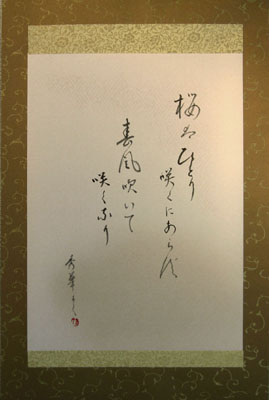 桜はひとり
咲くにあらず
春風吹いて
咲くなり
秀華